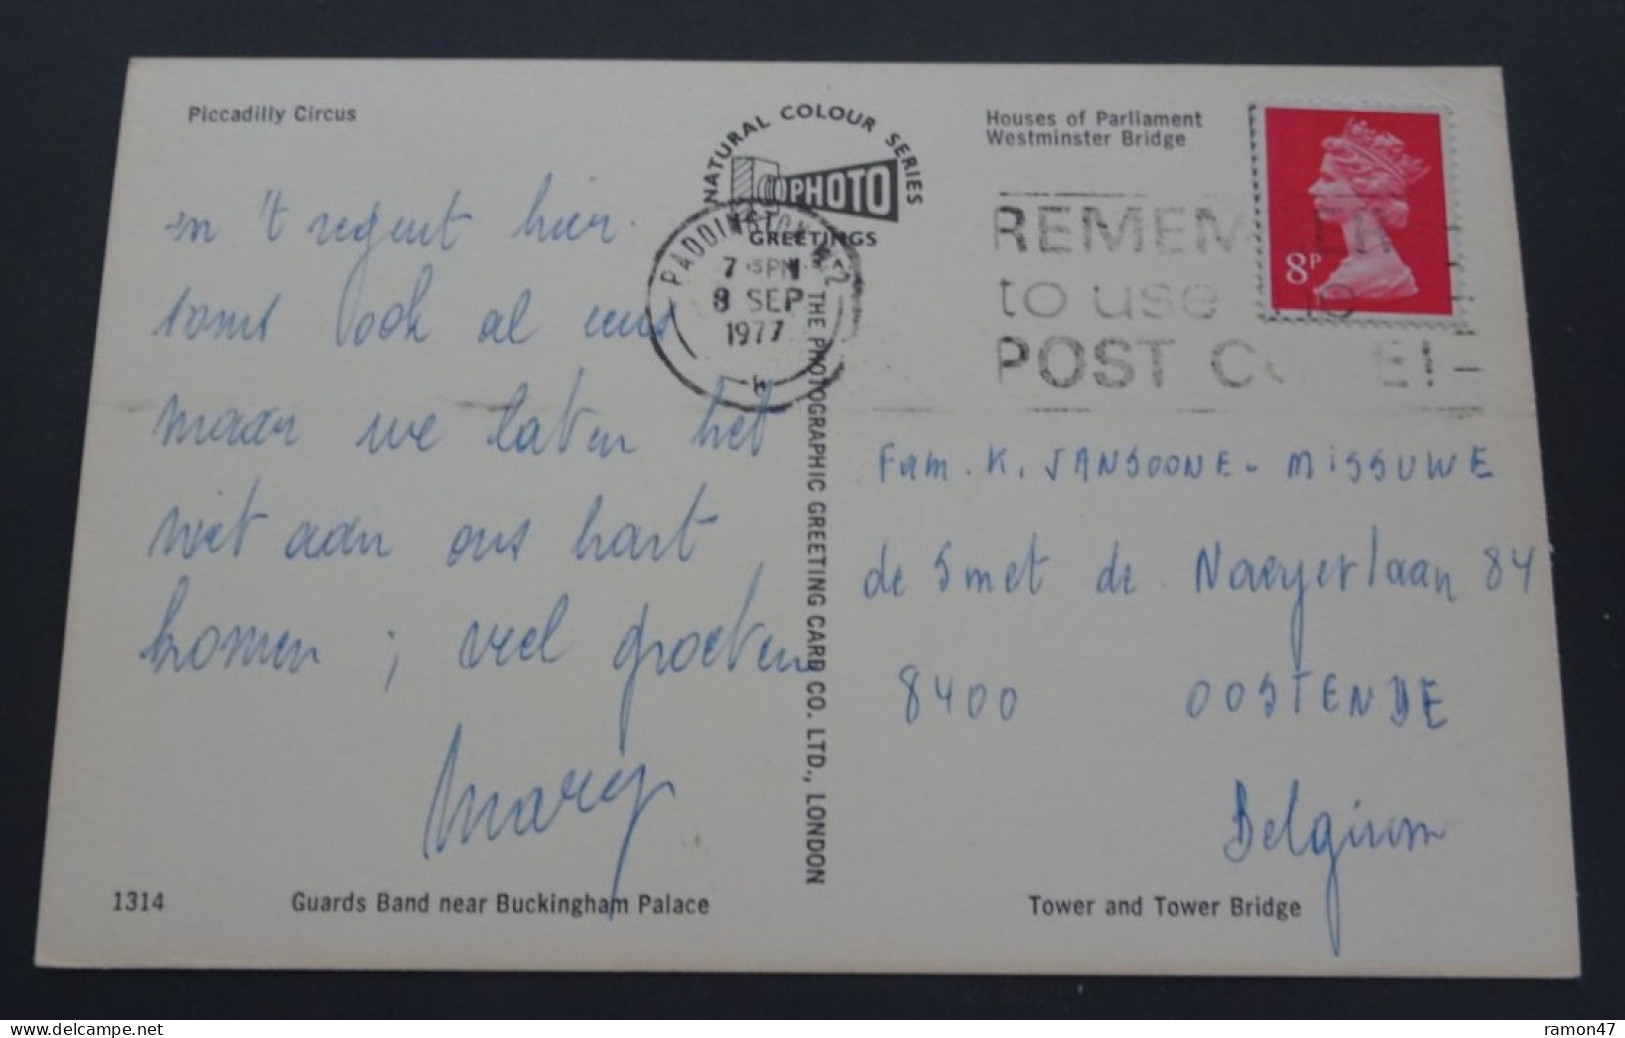 Piccadilly Circus
NATURAL COLOUR SERIES
PHOTO
GREETINGS
Houses of Parliament
Westminster Bridge
8P
PADDINGTON W2
7 PM
8 SEP
1977
REMEMBER
to use the
POST CODE!
en 't regent hier.
soms ook al eens
maar we laten het
niet aan ons hart
komen ; veel groeten
THE PHOTOGRAPHIC GREETING CARD CO. LTD., LONDON
Fam. K. JANSOONE - MISSUWE
de Smet de Naeyerlaan 84
8400 OOSTENDE
Belgium
1314
Guards Band near Buckingham Palace
Tower and Tower Bridge
www.delcampe.net
ramon47